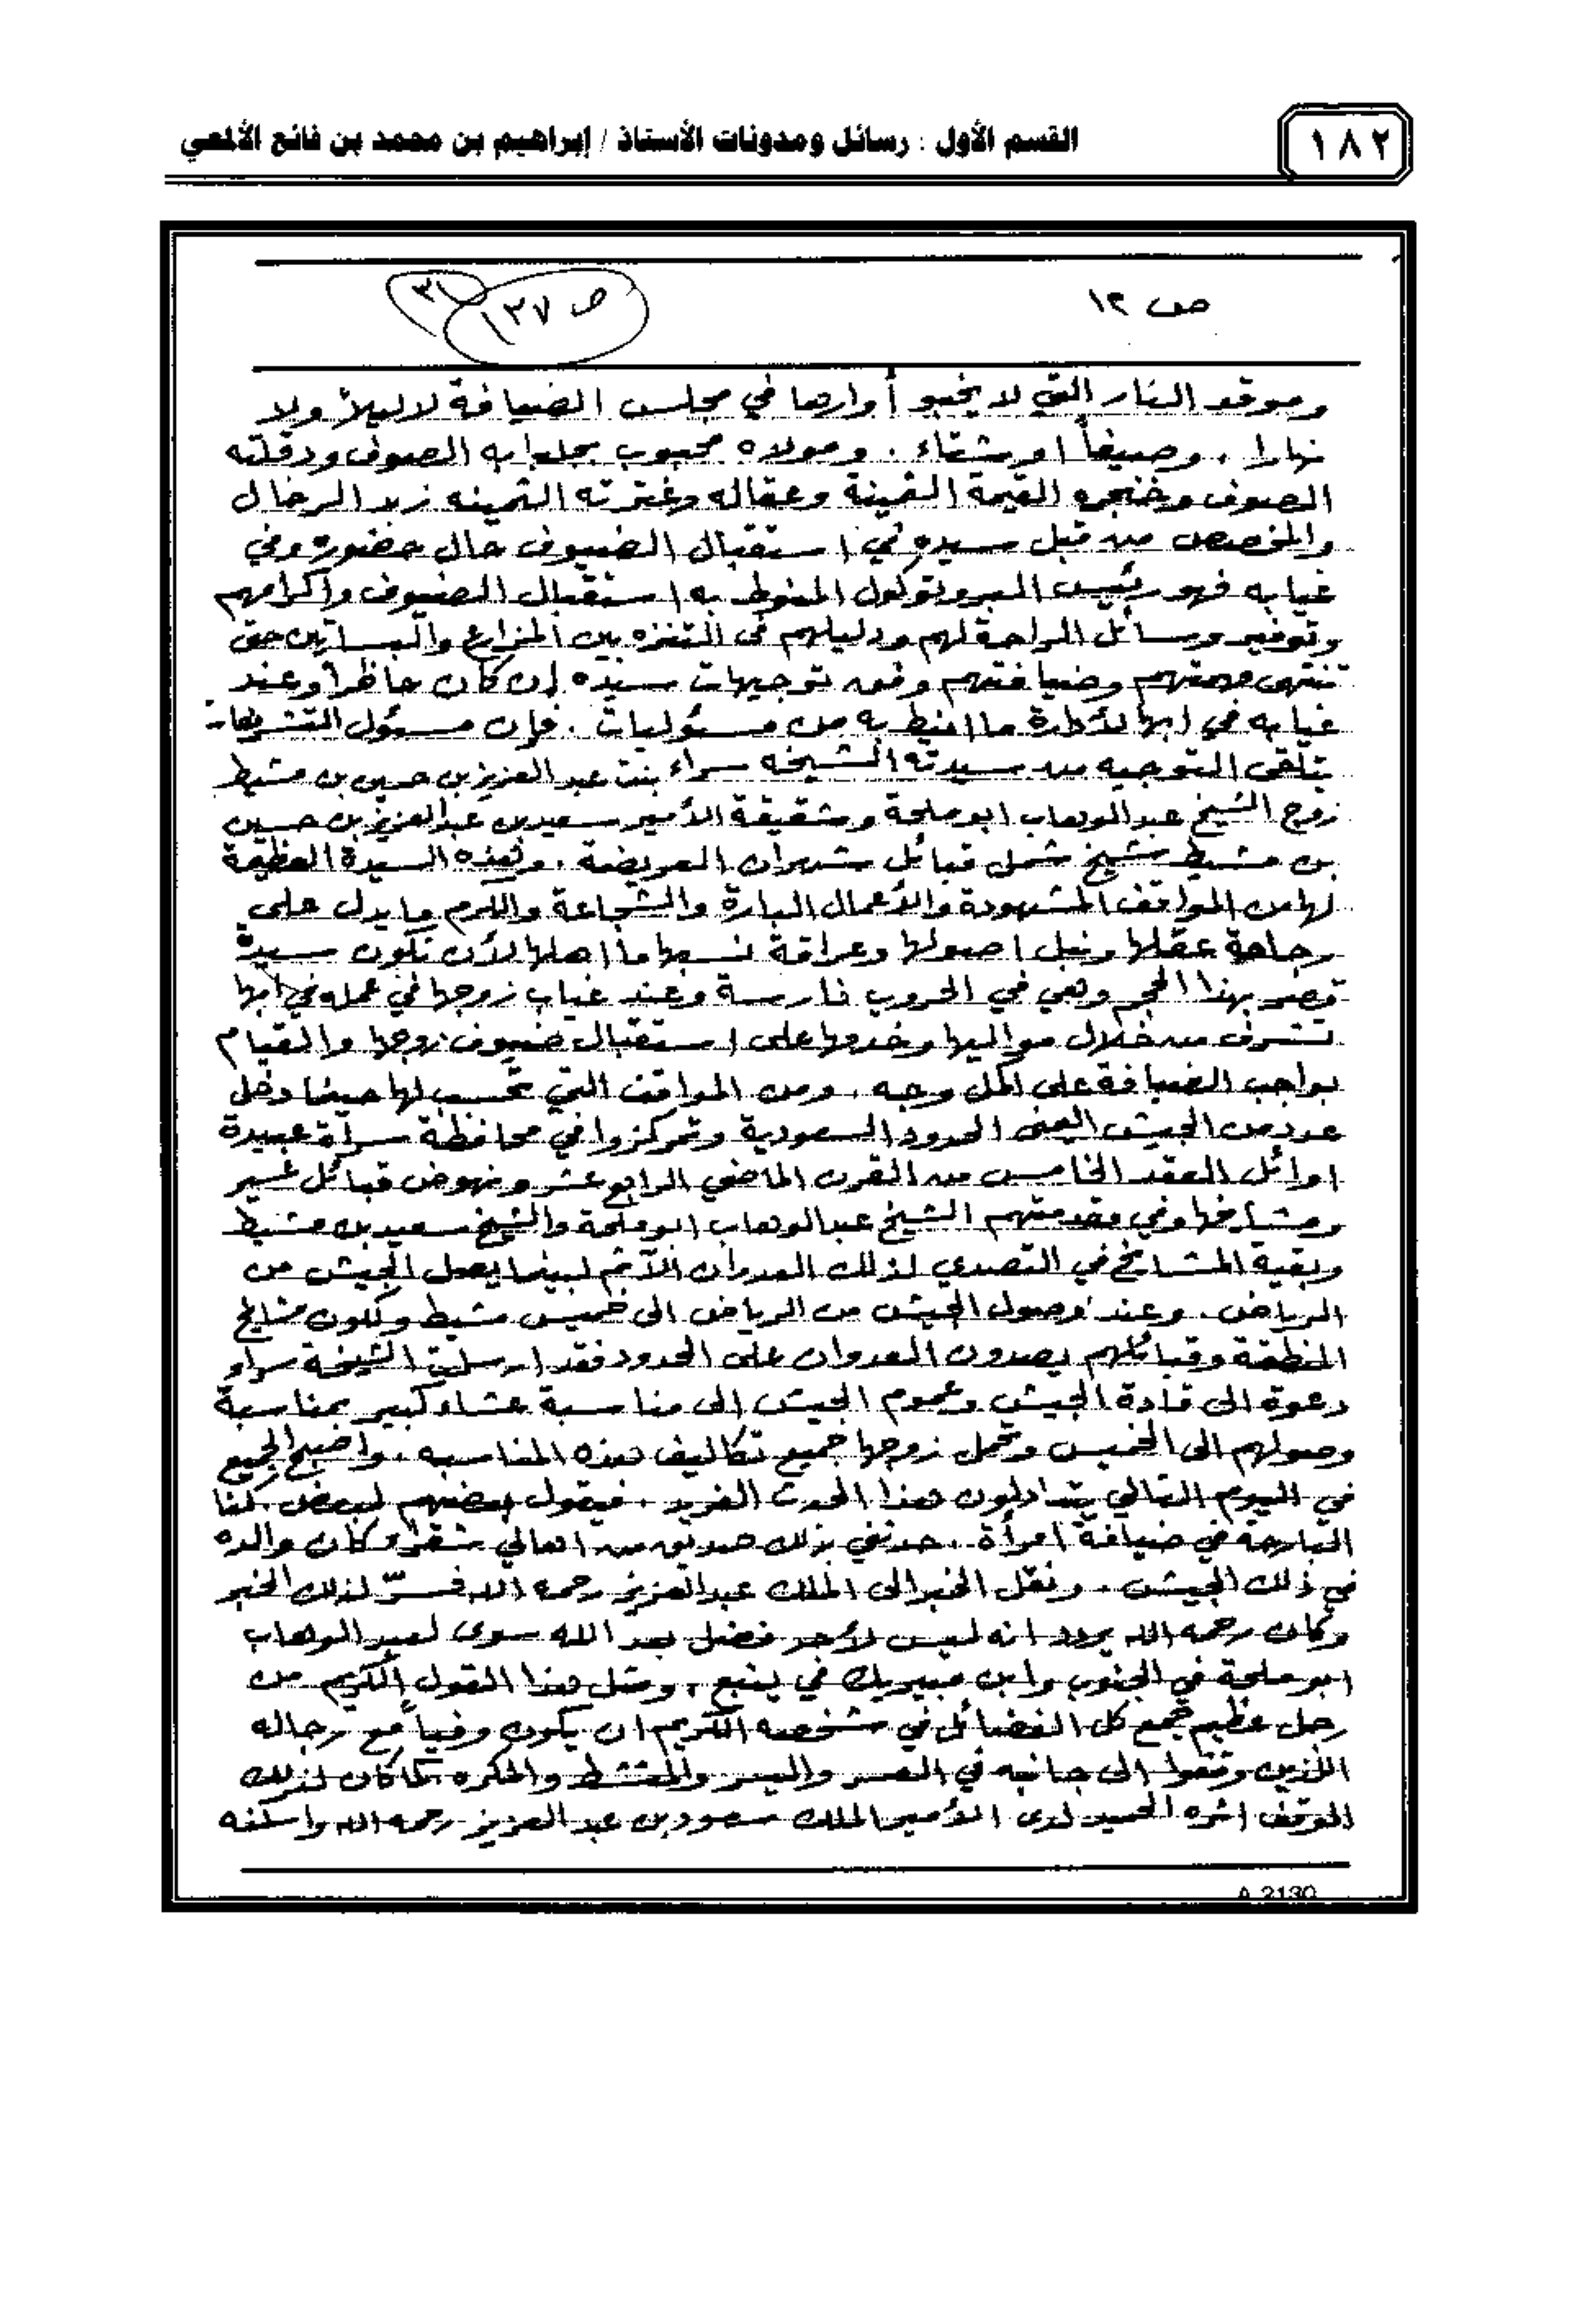 ١٨٢
القسم الأول : رسائل ومدونات الأستاذ / إبراهيم بن محمد بن فائع الألمعي
ص ١٢
ص ١٣٧
وموقد النار التي لا يخبو أوارها في مجلس الضيافة لا ليلاً ولا
نهارا . وصيفاً او شتاء . ومولاه محبوب بجلبابه الصوف ودقلته
الصوف وخنجره القيمة الثمينة وعقاله وغترته الثمينه زبد الرخال
والمخصص من قبل سيده في استقبال الضيوف حال حضوره وفي
غيابه فهو رئيس البروتوكول المنوط به استقبال الضيوف واكرامهم
وتوفير وسائل الراحة لهم ودليلهم في التنزه بين المزارع والبساتين حتى
تنتهي مهمتهم وضيافتهم وفق توجيهات سيده إن كان حاظراً وعند
غيابه في ابها لأدارة ما انيط به من مسئوليات . فإن مسئول التشريفات
يتلقى التوجيه من سيدته الشيخه سراء بنت عبد العزيز بن حسين بن مشيط
زوج الشيخ عبد الوهاب ابو ملحة وشقيقة الأمير سعيد بن عبدالعزيز بن حسين
بن مشيط شيخ شمل قبائل شهران العريضة . ولهذه السيدة العظيمة
لها من المواقف المشهودة والأعمال البارة والشجاعة والكرم ما يدل على
رجاحة عقلها ونبل اصولها وعراقة نسبها ما اهلها لأن تكون سيدة
قصر بهذا الحجم وهي في الحروب فارسة وعند غياب زوجها في عمله في ابها
تشرف من خلال مواليها وخدمها على استقبال ضيوف زوجها والقيام
بواجب الضيافة على اكمل وجه . ومن المواقف التي تحسب لها حينما دخل
عدد من الجيش اليمني الحدود السعودية وتمركزوا في محافظة سراة عبيدة
اوائل العقد الخامس من القرن الماضي الرابع عشر ونهوض قبائل عسير
ومشايخها وفي مقدمتهم الشيخ عبد الوهاب ابو ملحة والشيخ سعيد بن مشيط
وبقية المشايخ في التصدي لذلك العدوان الآثم لبينما يصل الجيش من
الرياض . وعند وصول الجيش من الرياض الى خميس مشيط وكون مشايخ
المنطقة وقبائلهم يصدون العدوان على الحدود فقد ارسلت الشيخة سراء
دعوة الى قادة الجيش وعموم الجيش الى مناسبة عشاء كبير بمناسبة
وصولهم الى الخميس وتحمل زوجها جميع تكاليف هذه المناسبه . واصبح الجميع
في اليوم التالي يتداولون هذا الحدث الفريد . فيقول بعضهم لبعض . كنا
البارحة في ضيافة امرأة . حدثني بذلك صديق من اهالي شقراء وكان والده
في ذلك الجيش . ونقل الخبر الى الملك عبدالعزيز رحمه الله فسرّ لذلك الخبر
وكان رحمه الله يردد انه ليس لأحد فضل بعد الله سوى لعبد الوهاب
ابو ملحة في الجنوب وابن مبيريك في ينبع . ومثل هذا القول الكريم من
رجل عظيم تجمع كل الفضائل في شخصه الكريم ان يكون وفياً مع رجاله
اللذين وقفوا الى جانبه في العسر واليسر والمنشط والمكره كما كان لذلك
الموقف اثره الحميد لدى الأمير الملك سعود بن عبد العزيز رحمه الله واسكنه
A 2130